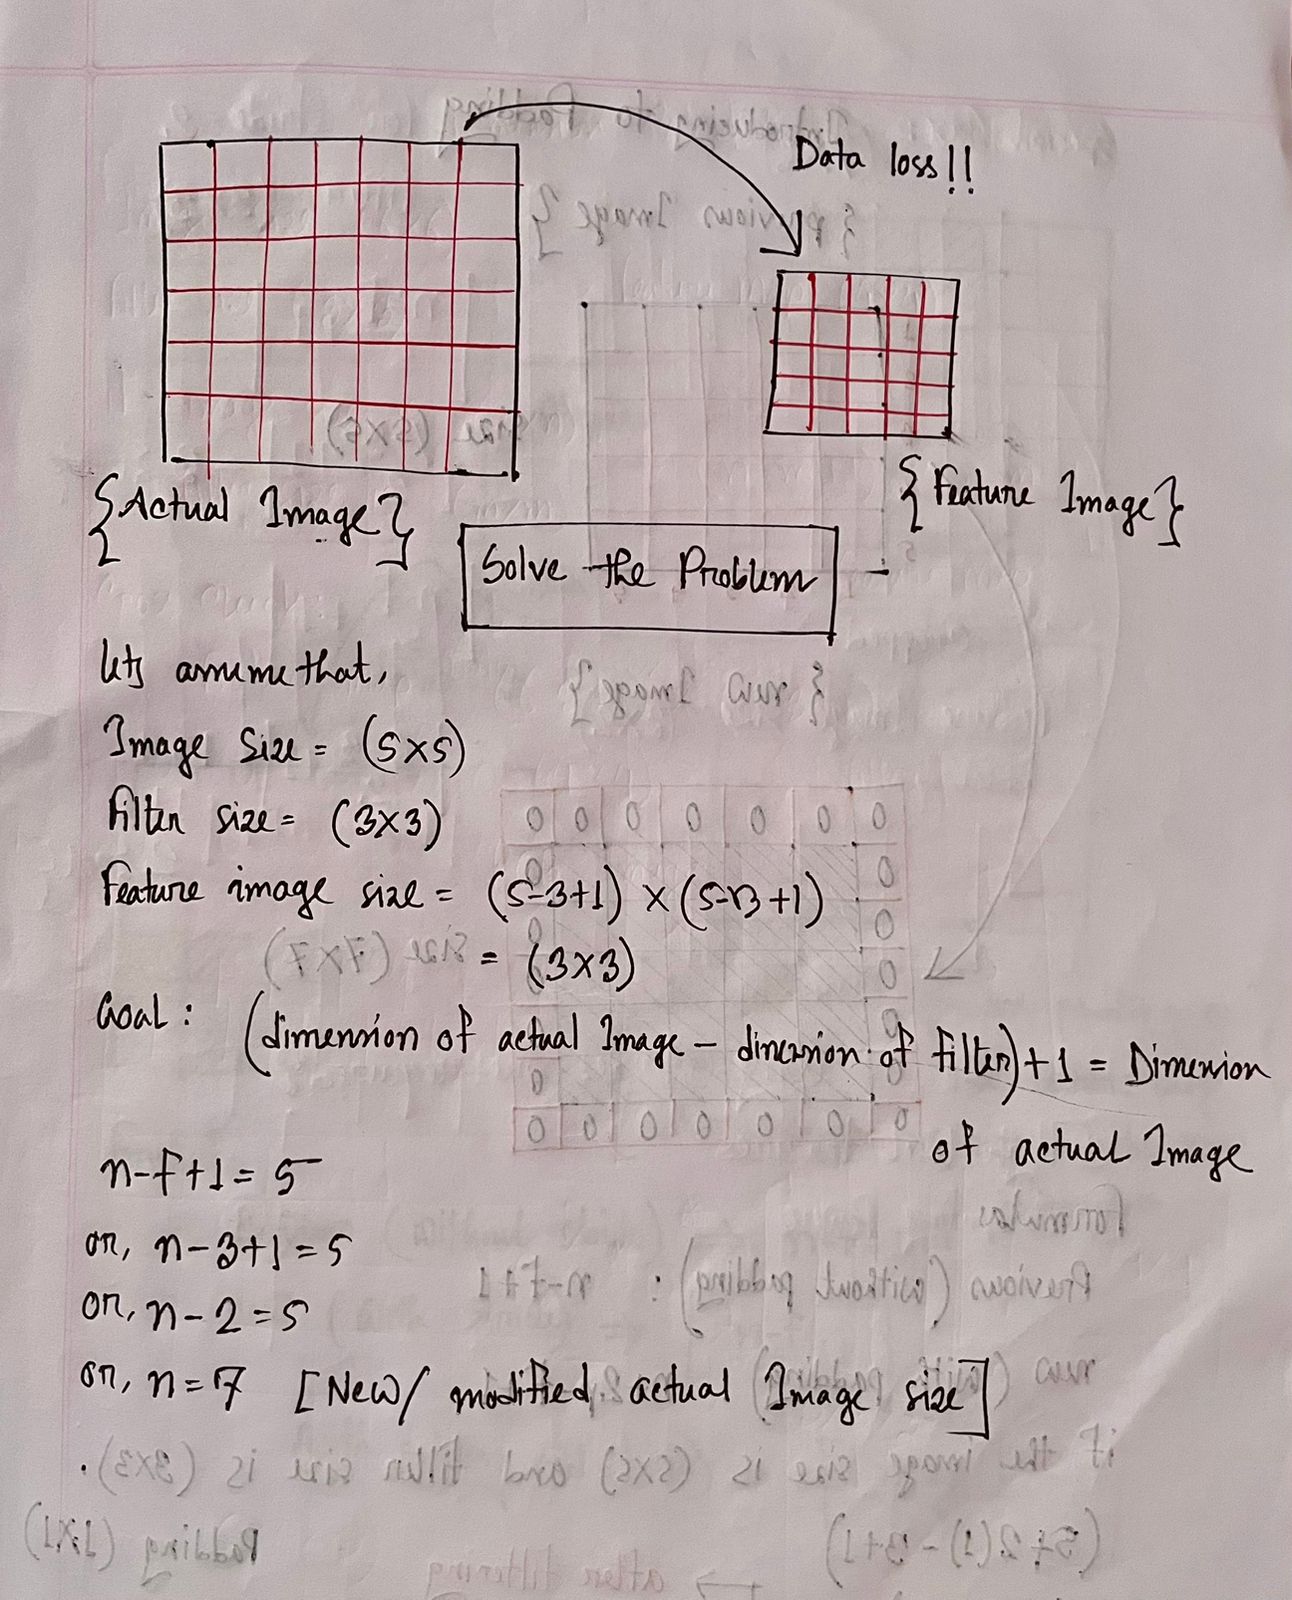 Data loss!!
{Actual Image}
{Feature Image}
Solve the Problem
lets assume that,
Image Size = (5×5)
Filter size = (3×3)
Feature image size = (5-3+1) × (5-3+1)
= (3×3)
Goal: (dimension of actual Image - dimension of filter) + 1 = Dimension
of actual Image
n-f+1 = 5
or, n-3+1 = 5
or, n-2 = 5
or, n = 7 [New/ modified actual Image size]